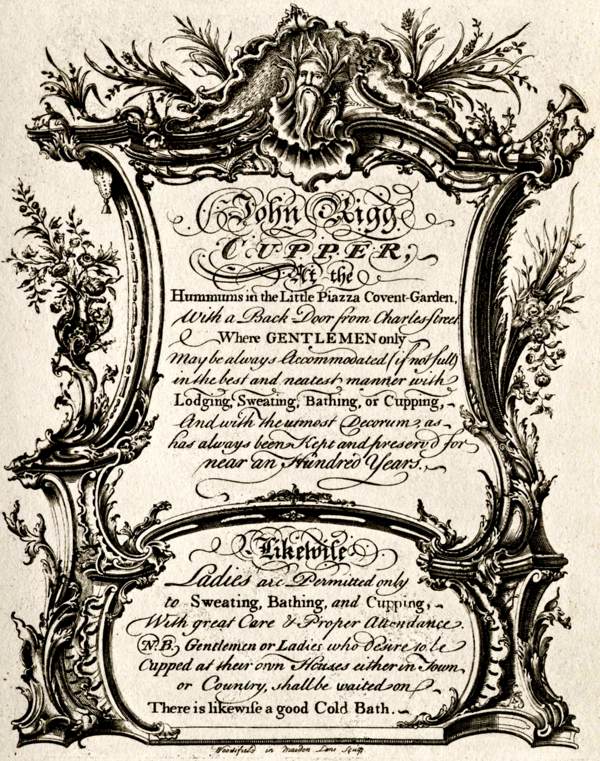 John Rigg
CUPPER,
At the
Hummums in the Little Piazza Covent-Garden,
With a Back-Door from Charles-street
Where GENTLEMEN only
May be always Accommodated (if not full)
in the best and neatest manner with
Lodging, Sweating, Bathing, or Cupping,
And with the utmost Decorum, as
has always been Kept and preserv'd for
near an Hundred Years.
Likewiſe
Ladies are Permitted only
to Sweating, Bathing, and Cupping,
With great Care & Proper Attendance
N.B. Gentlemen or Ladies who desire to be
Cupped at their own Houses either in Town
or Country, shall be waited on
There is likewiſe a good Cold Bath.
in Maiden Lane